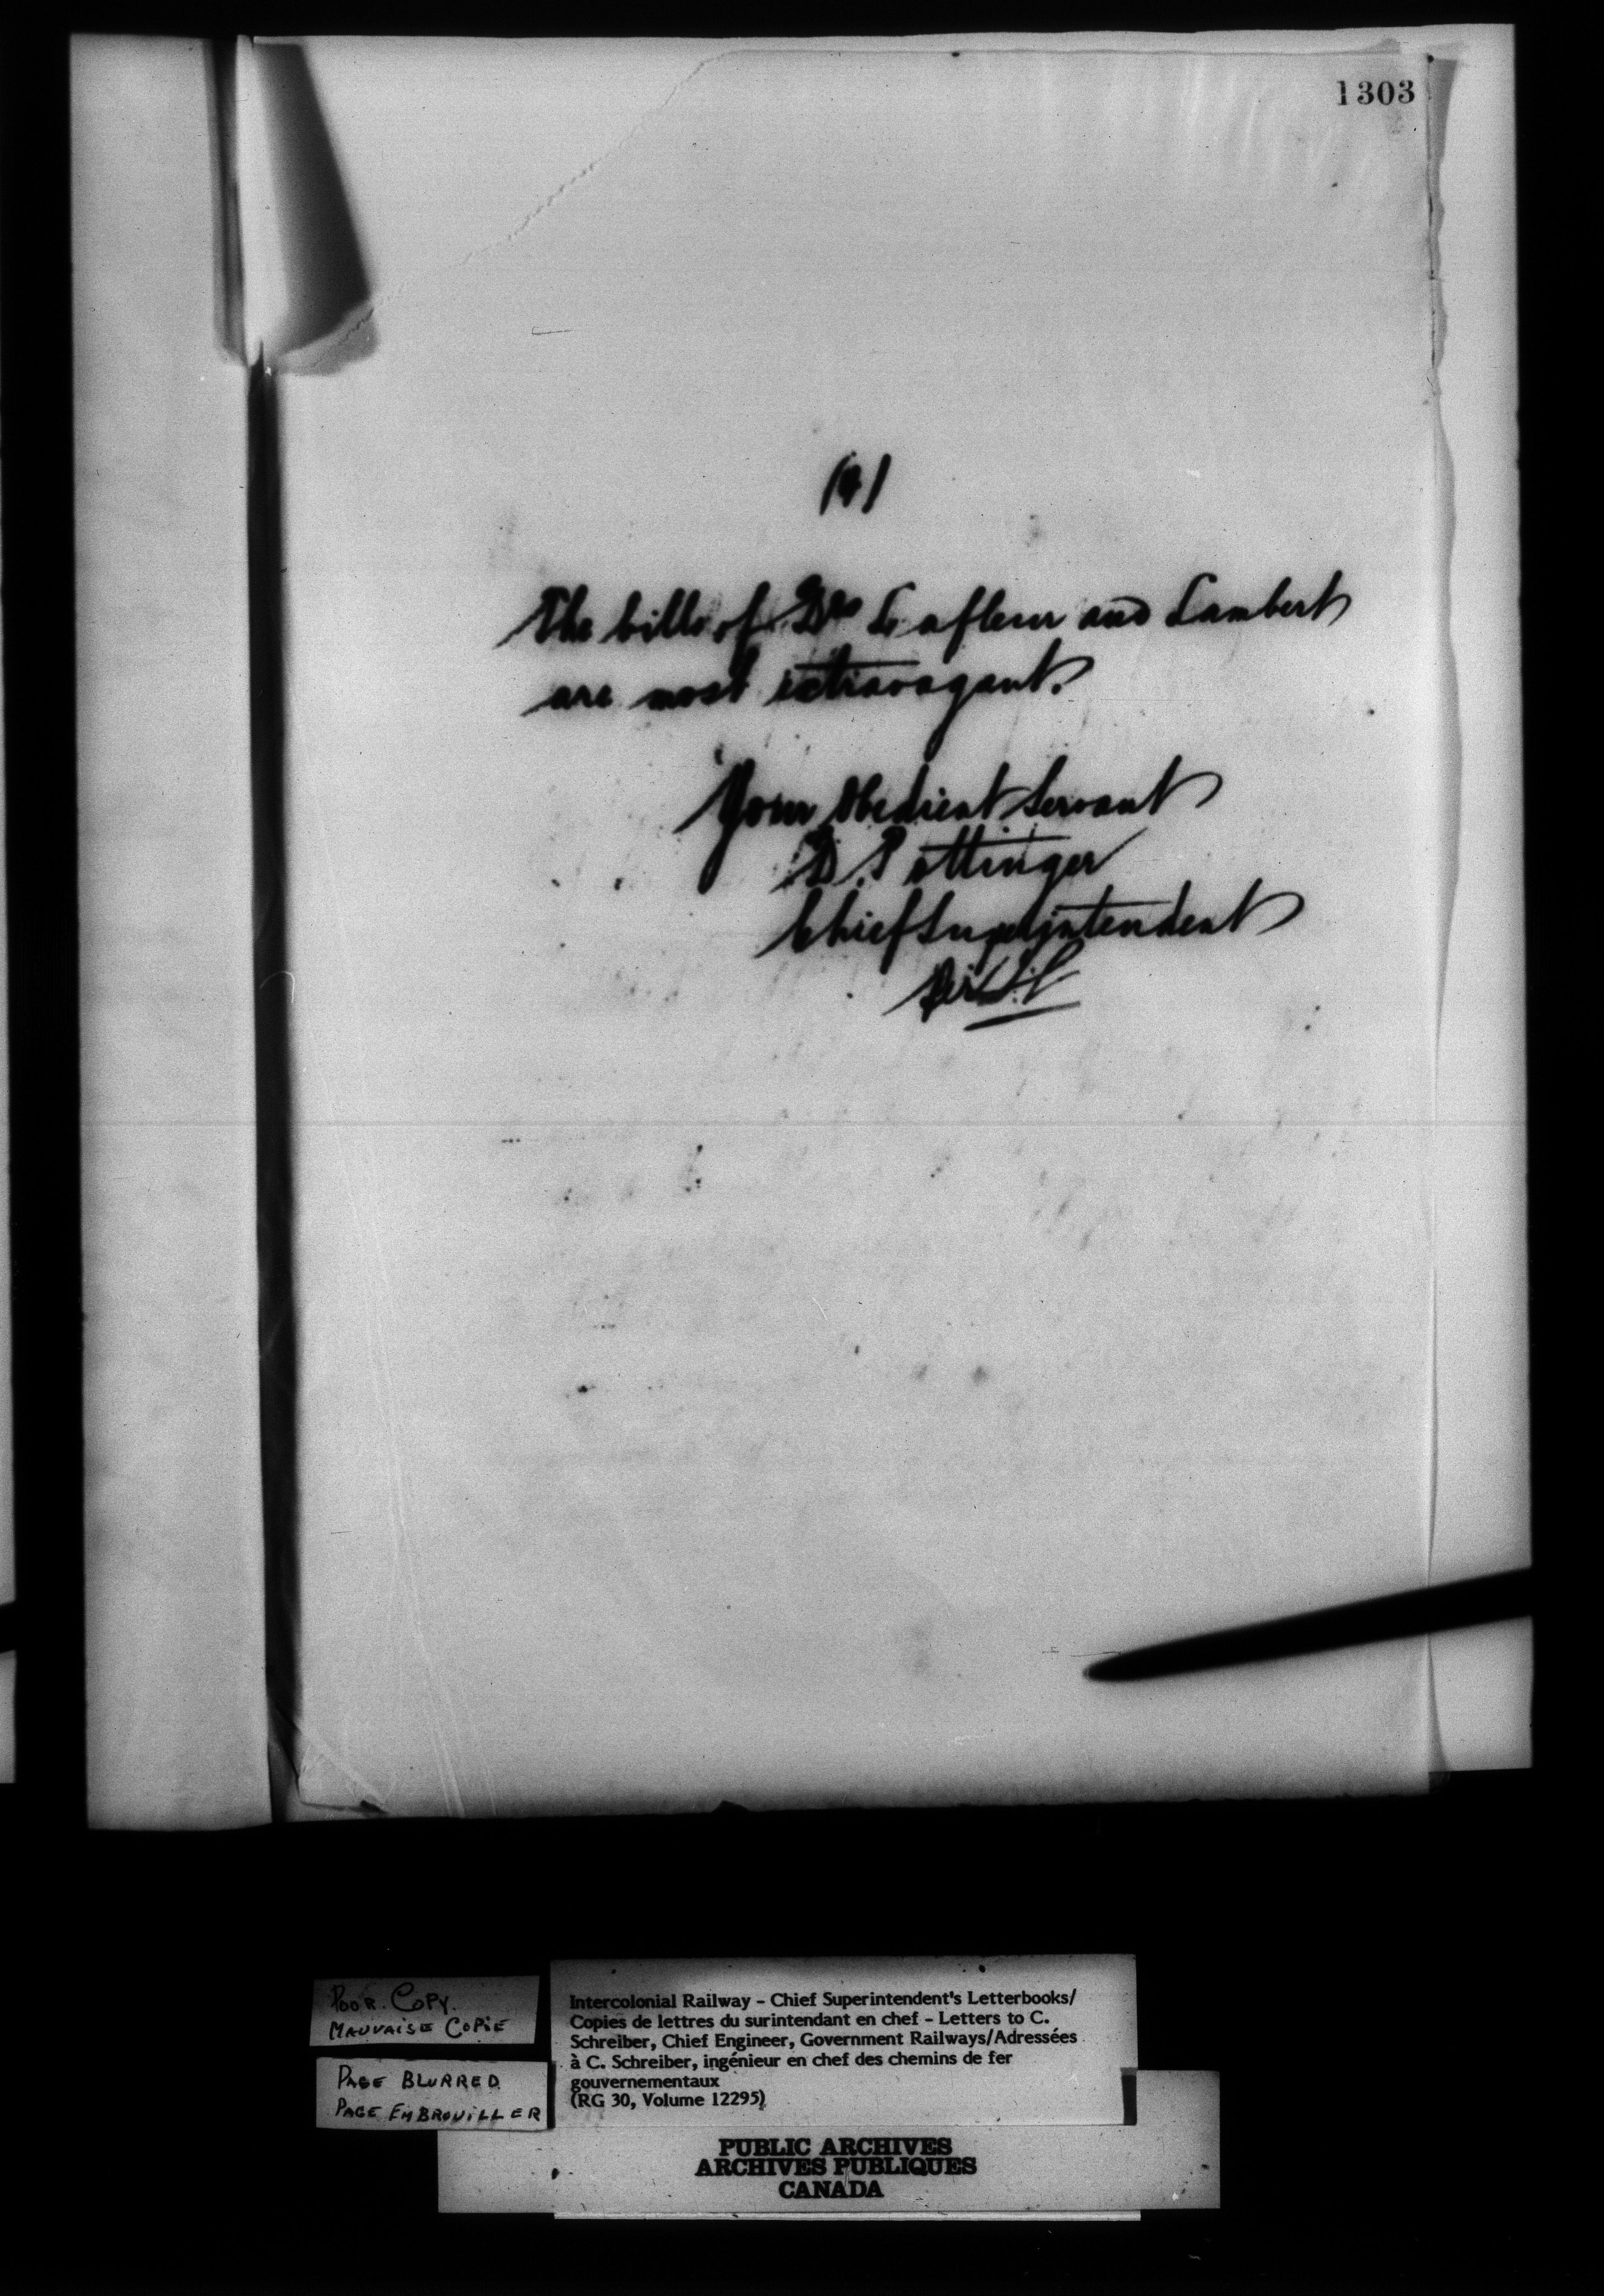 1303
The bills of Drs Lafleur and Lambert
are most extravagant.
Your Obedient Servant
D. Pottinger
Chief Superintendent
Per
POOR COPY.
MAUVAISE COPIE
PAGE BLURRED
PAGE EMBROUILLER
Intercolonial Railway – Chief Superintendent's Letterbooks/
Copies de lettres du surintendant en chef – Letters to C.
Schreiber, Chief Engineer, Government Railways/Adressées
à C. Schreiber, ingénieur en chef des chemins de fer
gouvernementaux
(RG 30, Volume 12295)
PUBLIC ARCHIVES
ARCHIVES PUBLIQUES
CANADA